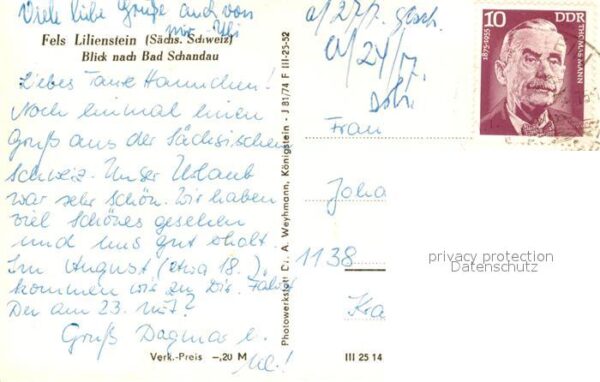 Viele liebe Grüße auch von
mir Uli
Fels Lilienstein (Sächs. Schweiz)
Blick nach Bad Schandau
Liebes Tante Hannchen!
Noch einmal einen
Gruß aus der Sächsischen
Schweiz. Unser Urlaub
war sehr schön. Wir haben
viel schönes gesehen
und uns gut erholt.
Im August (etwa 18.)
kommen wir zu Dir. Fährst
Du am 23. mit?
Gruß Dagmar u.
Uli!
Verk.-Preis —,20 M
Photowerkstatt Dr. A. Weyhmann, Königstein · J 81/74 F III-25-52
a/27/7. gesch.
a/24/7.
10
DDR
1875-1955
THOMAS MANN
Frau
Joha
1138
Kra
III 25 14
privacy protection
Datenschutz